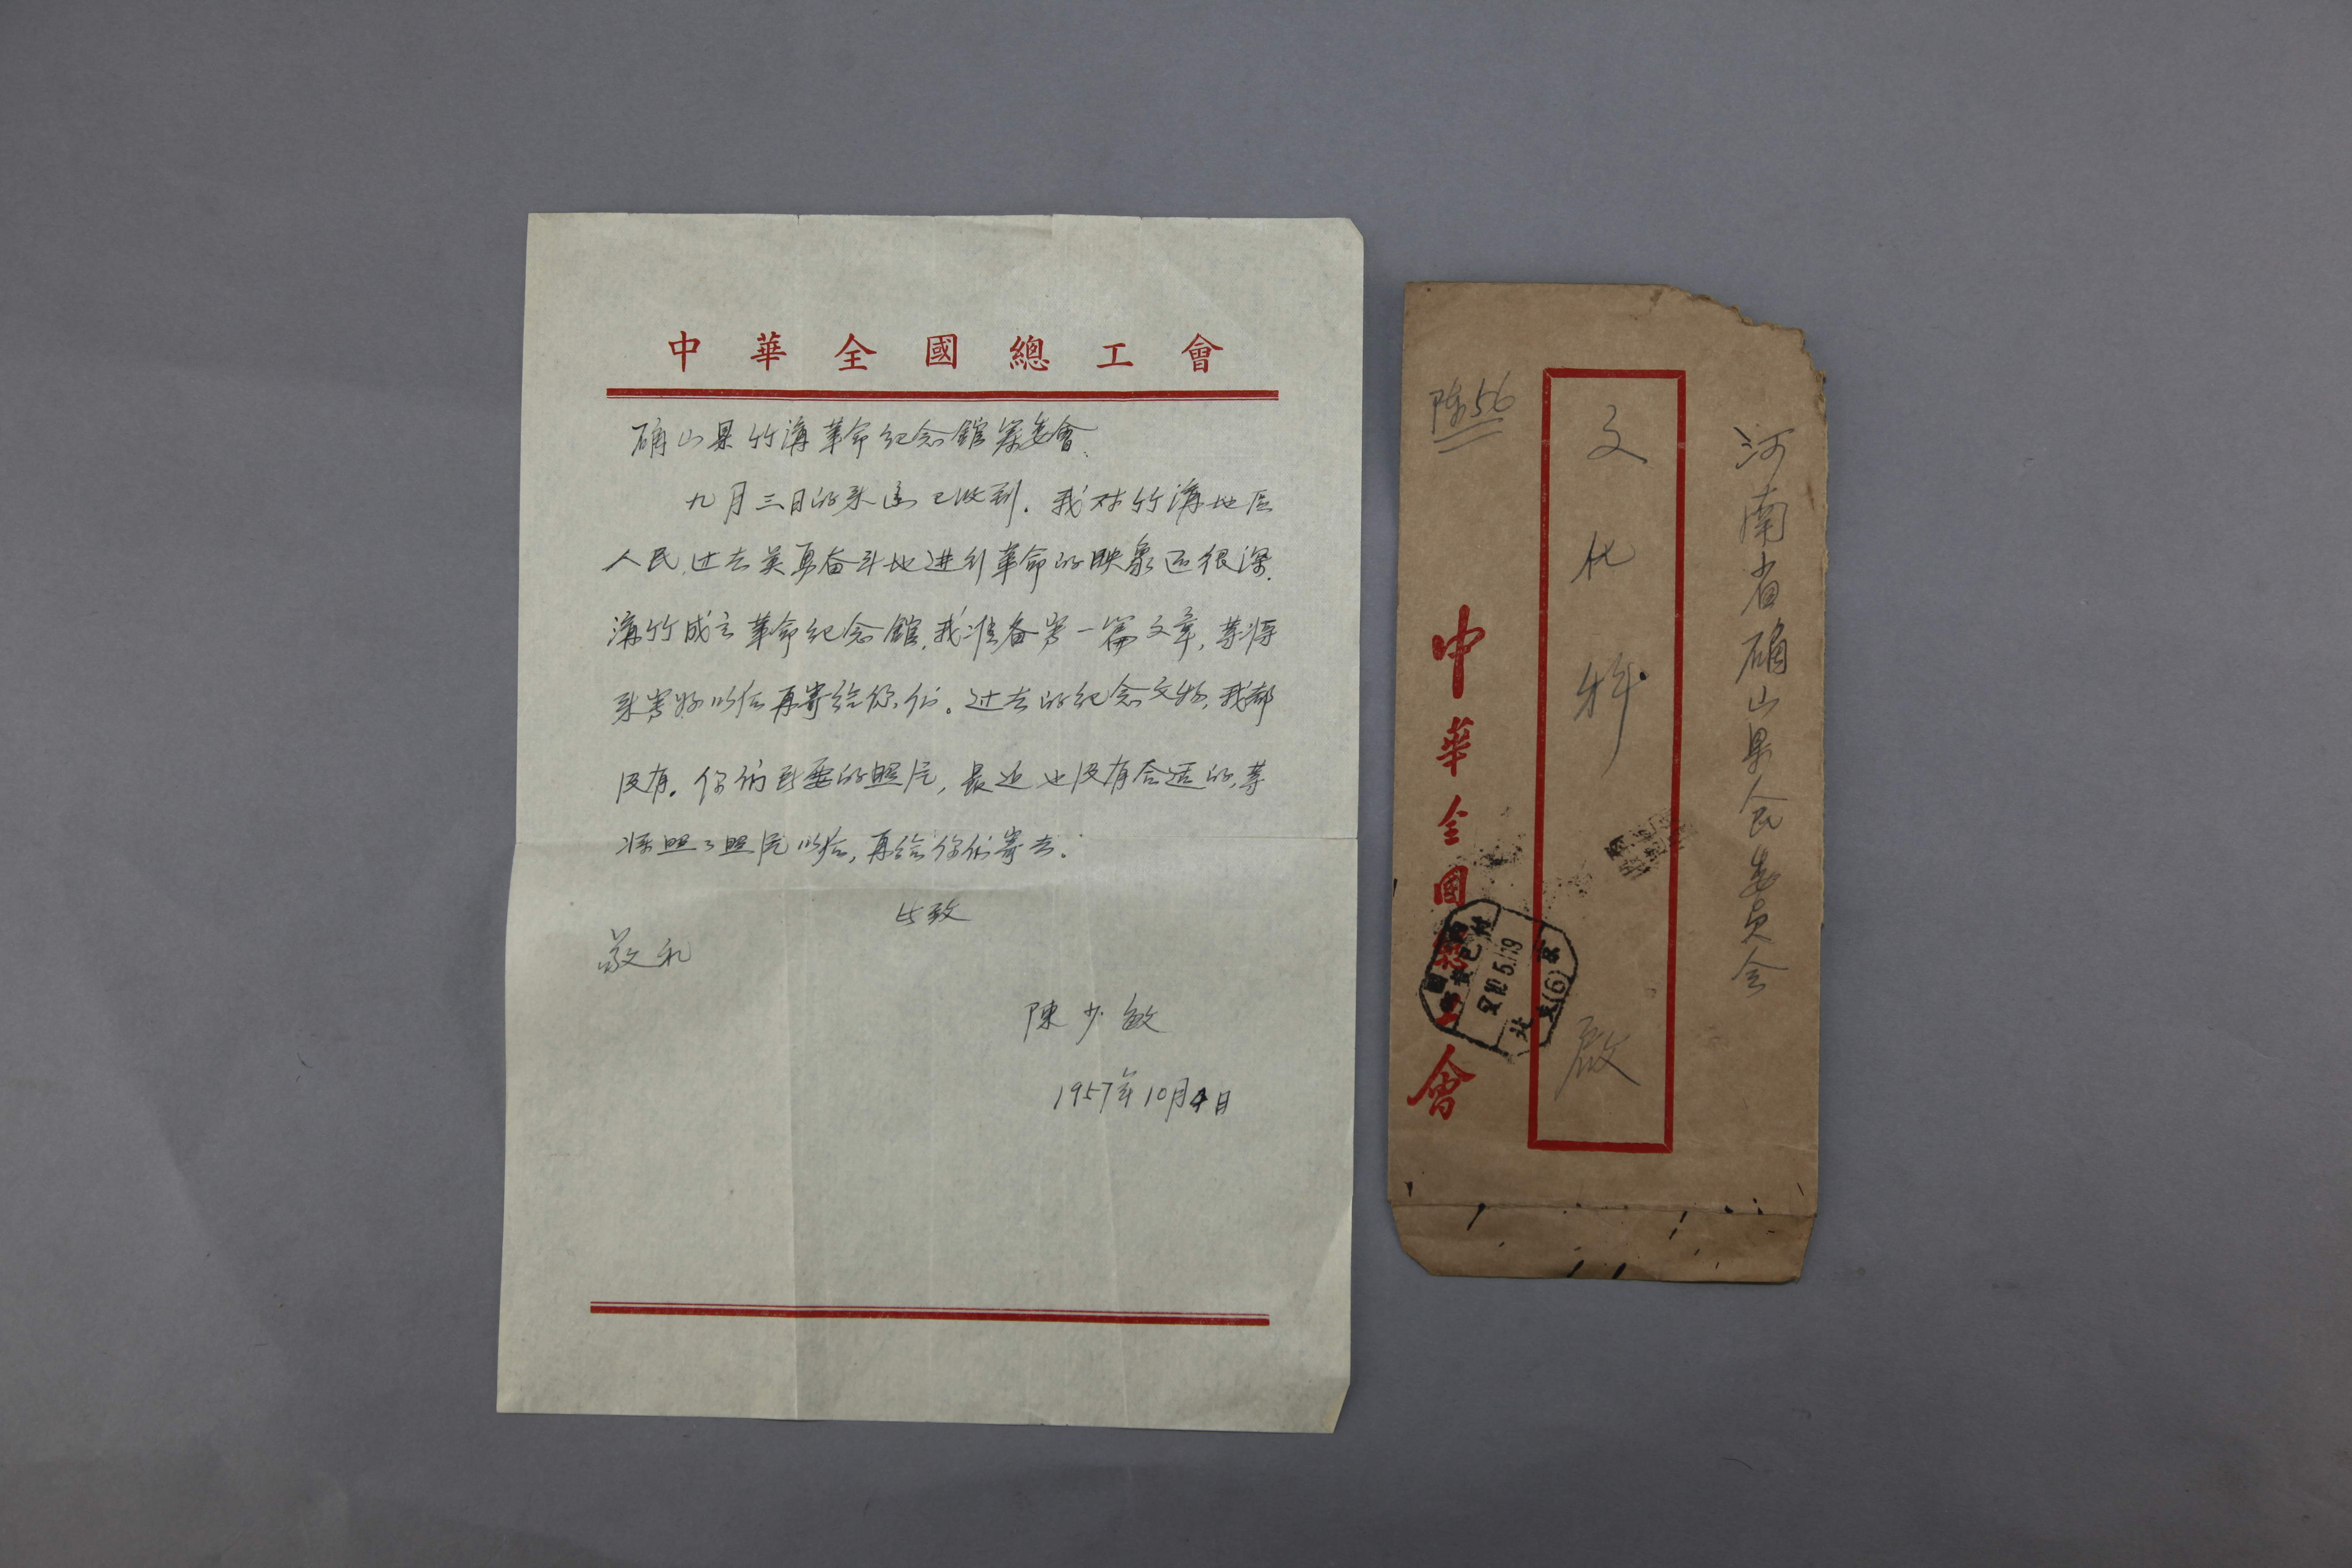 中華全國總工會
确山县竹溝革命纪念館筹委會、
九月三日的来函已收到．我对竹溝地区
人民，过去英勇奋斗地进行革命的映象还很深．
溝竹成立革命纪念館，我准备写一篇文章，等将
来写好以后再寄给你们。过去的纪念文物，我都
没有。你们所要的照片，最近也没有合适的，等
将照了照片以后，再给你们寄去．
此致
敬礼
陳少敏
1957年10月4日
河南省确山县人民委员会
文化科
啟
陈56
中華全國總工會
57.10.5.19
北京(6)